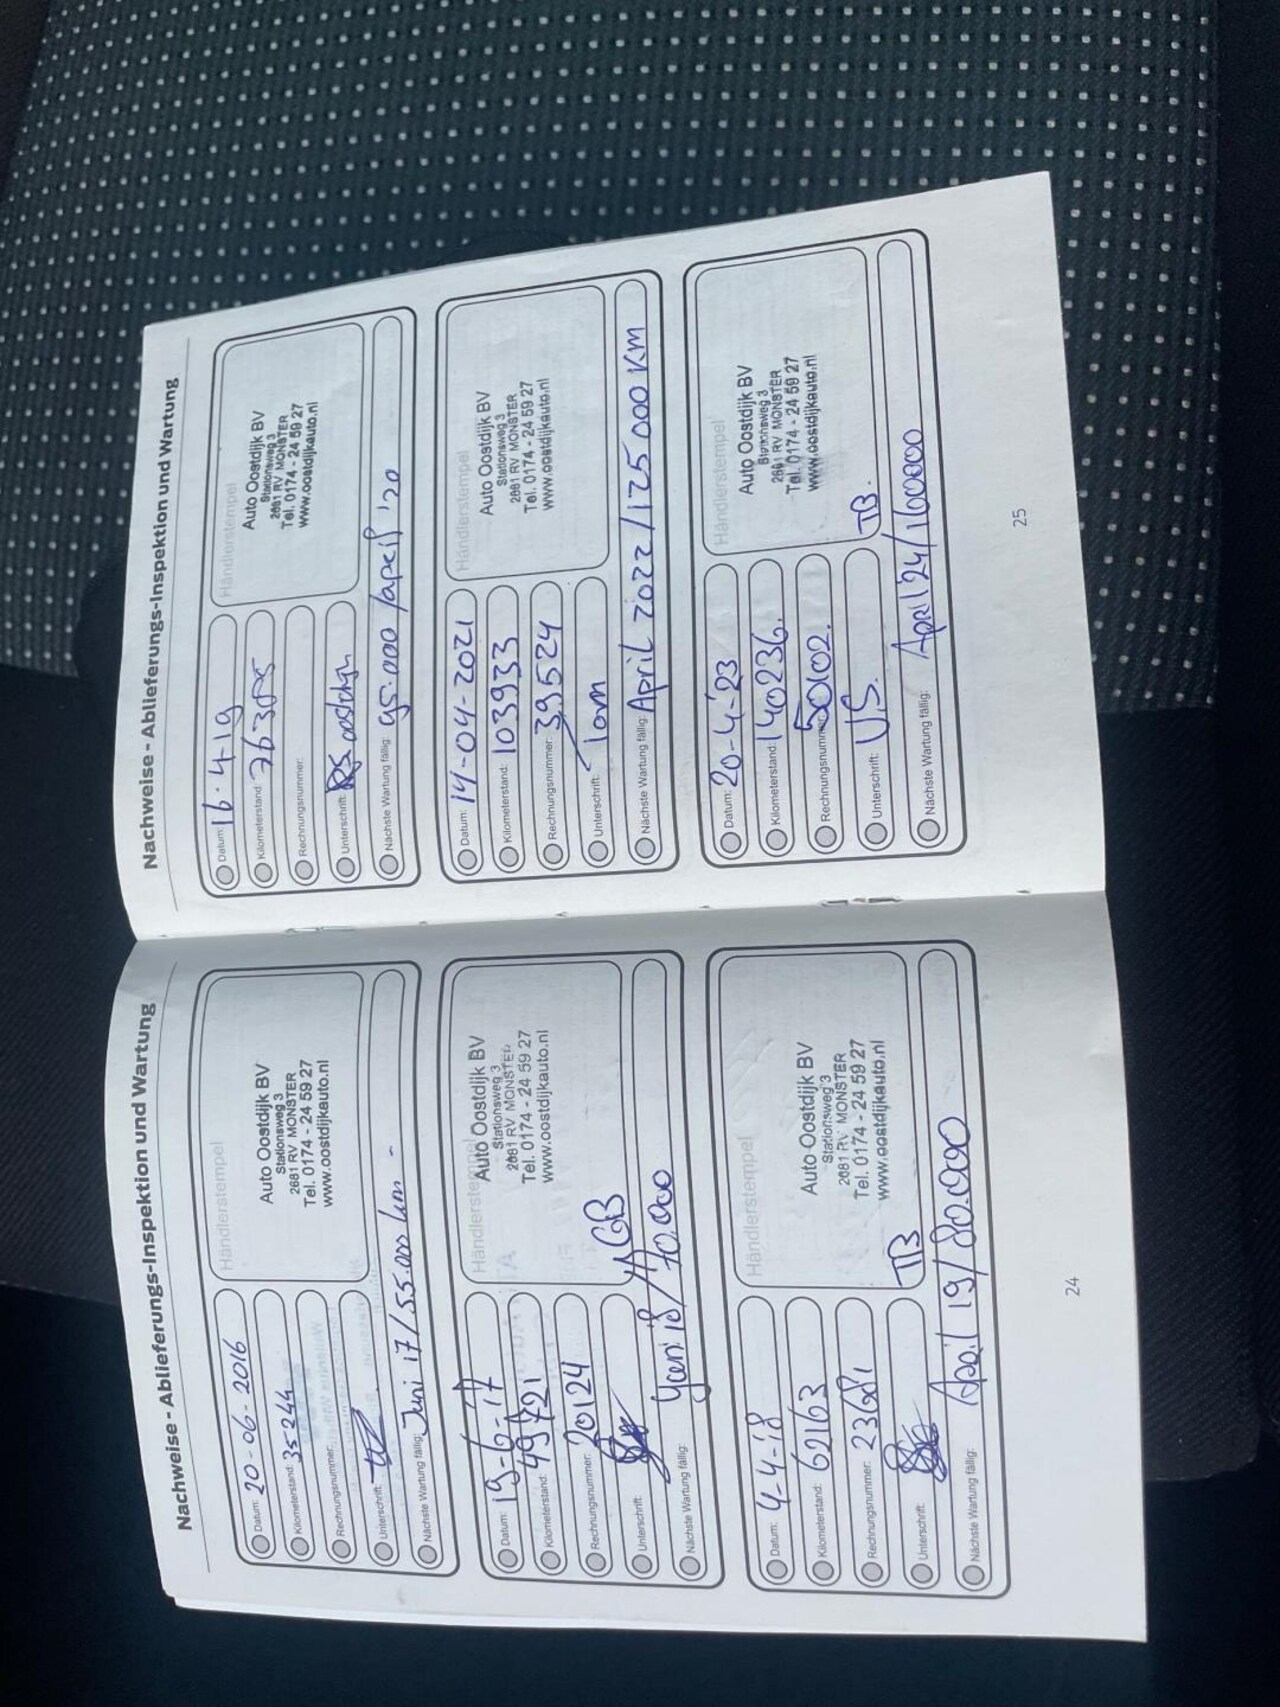 Nachweise - Ablieferungs-Inspektion und Wartung
Datum: 20-06-2016
Kilometerstand: 35244
Rechnungsnummer:
Unterschrift:
Nächste Wartung fällig: Juni 17/55.000 km -
Händlerstempel
Auto Oostdijk BV
Stationsweg 3
2681 RV MONSTER
Tel. 0174 - 24 59 27
www.oostdijkauto.nl
Datum: 19-6-17
Kilometerstand: 49721
Rechnungsnummer: 20124
Unterschrift: GB
Nächste Wartung fällig: Juni 18/70.000
Händlerstempel
Auto Oostdijk BV
Stationsweg 3
2681 RV MONSTER
Tel. 0174 - 24 59 27
www.oostdijkauto.nl
Datum: 4-4-18
Kilometerstand: 62163
Rechnungsnummer: 23681
Unterschrift: TB
Nächste Wartung fällig: April 19/80.000
Händlerstempel
Auto Oostdijk BV
Stationsweg 3
2681 RV MONSTER
Tel. 0174 - 24 59 27
www.oostdijkauto.nl
24
Nachweise - Ablieferungs-Inspektion und Wartung
Datum: 16.4.19
Kilometerstand: 76385
Rechnungsnummer:
Unterschrift:
Nächste Wartung fällig: 95.000 /april '20
Händlerstempel
Auto Oostdijk BV
Stationsweg 3
2681 RV MONSTER
Tel. 0174 - 24 59 27
www.oostdijkauto.nl
Datum: 14-04-2021
Kilometerstand: 103933
Rechnungsnummer: 39524
Unterschrift: Tom
Nächste Wartung fällig: April 2022/125000 KM
Händlerstempel
Auto Oostdijk BV
Stationsweg 3
2681 RV MONSTER
Tel. 0174 - 24 59 27
www.oostdijkauto.nl
Datum: 20-4-'23
Kilometerstand: 140236.
Rechnungsnummer: 50102.
Unterschrift: VS. TB.
Nächste Wartung fällig: April '24/160000
Händlerstempel
Auto Oostdijk BV
Stationsweg 3
2681 RV MONSTER
Tel. 0174 - 24 59 27
www.oostdijkauto.nl
25